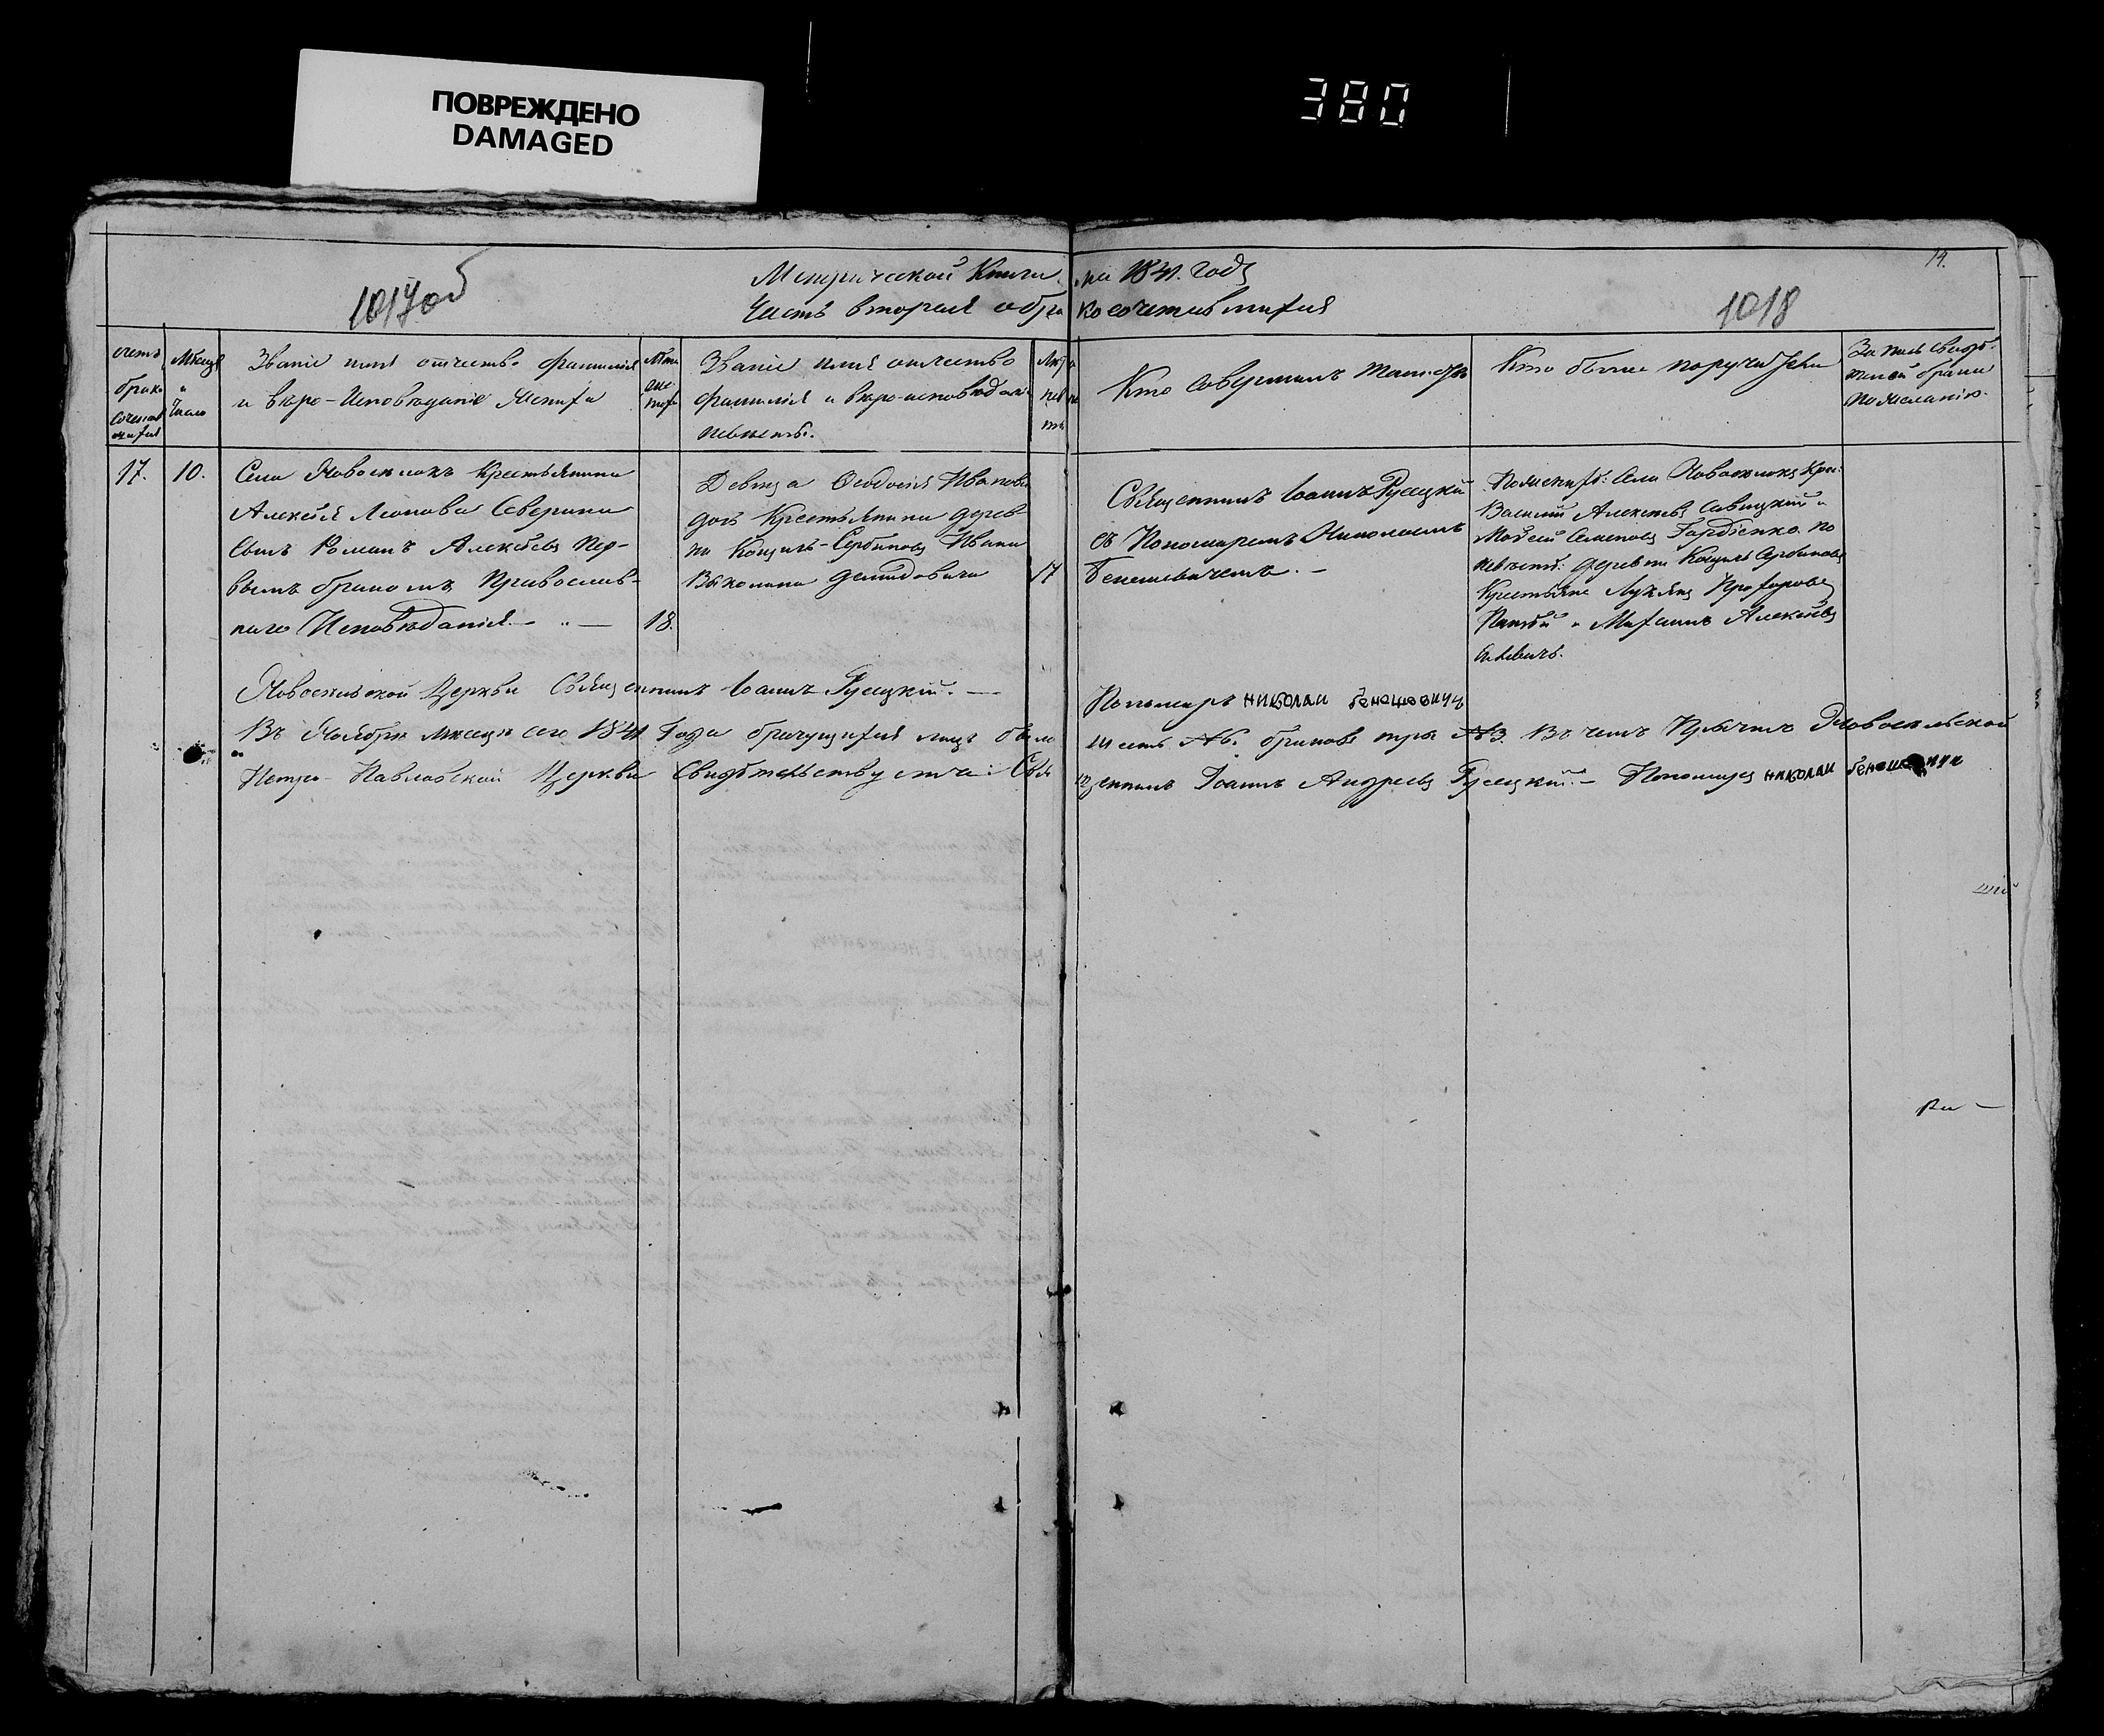 ПОВРЕЖДЕНО
DAMAGED
380
19.
1017 об
1018
Метрической Книги на 1841. годъ
Часть вторая о бракосочетавшихся
счетъ брако сочетавшихся
Мѣсяцъ и Число
Званіе имя отчество фамилія
и вѣро-Исповѣданіе Жениха
Лѣта жениха
Званіе имя отчество
фамилія и вѣро-исповѣданіе
невѣсты.
Лѣта невѣсты
Кто совершилъ таинство
Кто были поручители
17.
10.
Села Новоселокъ Крестьянина
Алексѣя Леонова Северина
Сынъ Романъ Алексѣевъ пер-
вымъ бракомъ, Православ-
наго Исповѣданія. —
18.
Девица Феодосія Иванова
дочь Крестьянина дерев-
ни Сербиновъ Ивана
Демидовича
17
Священникъ Іоаннъ Русецкій
съ Пономаремъ Николаемъ
Бенешевичемъ. —
По женихѣ: Села Новоселокъ Крес:
Василій Алексѣевъ Савицкій и
Мойсей Семеновъ Гордіенко. по
невѣстѣ: деревни Сербиновъ
Крестьяне Лукьянъ Прохоровъ
и Максимъ Алексѣевъ
Новосельской Церкви Священникъ Іоаннъ Русецкій. —
Пономарь николаи бенешевичъ
Въ Ноябрѣ мѣсяцѣ сего 1841 Года брачущихся лицъ было шесть №6. браковъ три №3. Въ чемъ Причтъ Новосельской
Петро-Павловской Церкви Свидѣтельствуетъ: Священникъ Іоаннъ Андреевъ Русецкій. — Пономарь николаи